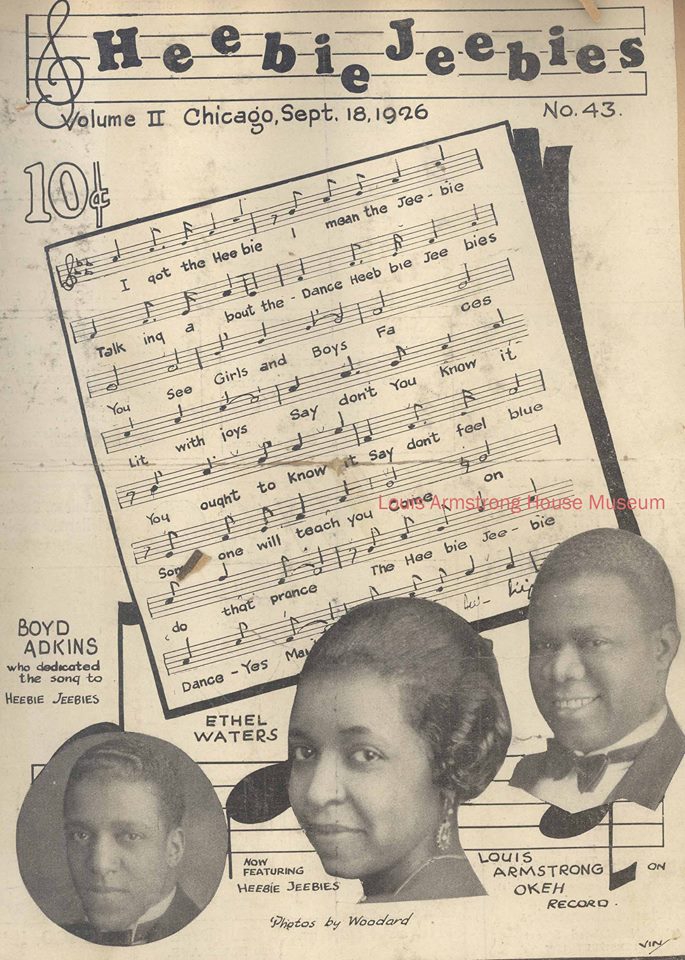 Heebie Jeebies
Volume II Chicago, Sept. 18, 1926 No. 43.
10¢
I got the Hee bie I mean the Jee - bie
Talk ing a bout the - Dance Heeb bie Jee bies
You See Girls and Boys Fa ces
Lit with joys Say don't You Know it
You ought to Know it Say don't feel blue
Some one will teach you come on
do that prance The Hee bie Jee - bie
Dance - Yes
Louis Armstrong House Museum
BOYD
ADKINS
who dedicated
the song to
HEEBIE JEEBIES
ETHEL
WATERS
NOW
FEATURING
HEEBIE JEEBIES
LOUIS
ARMSTRONG
ON
OKEH
RECORD.
Photos by Woodard
VIN